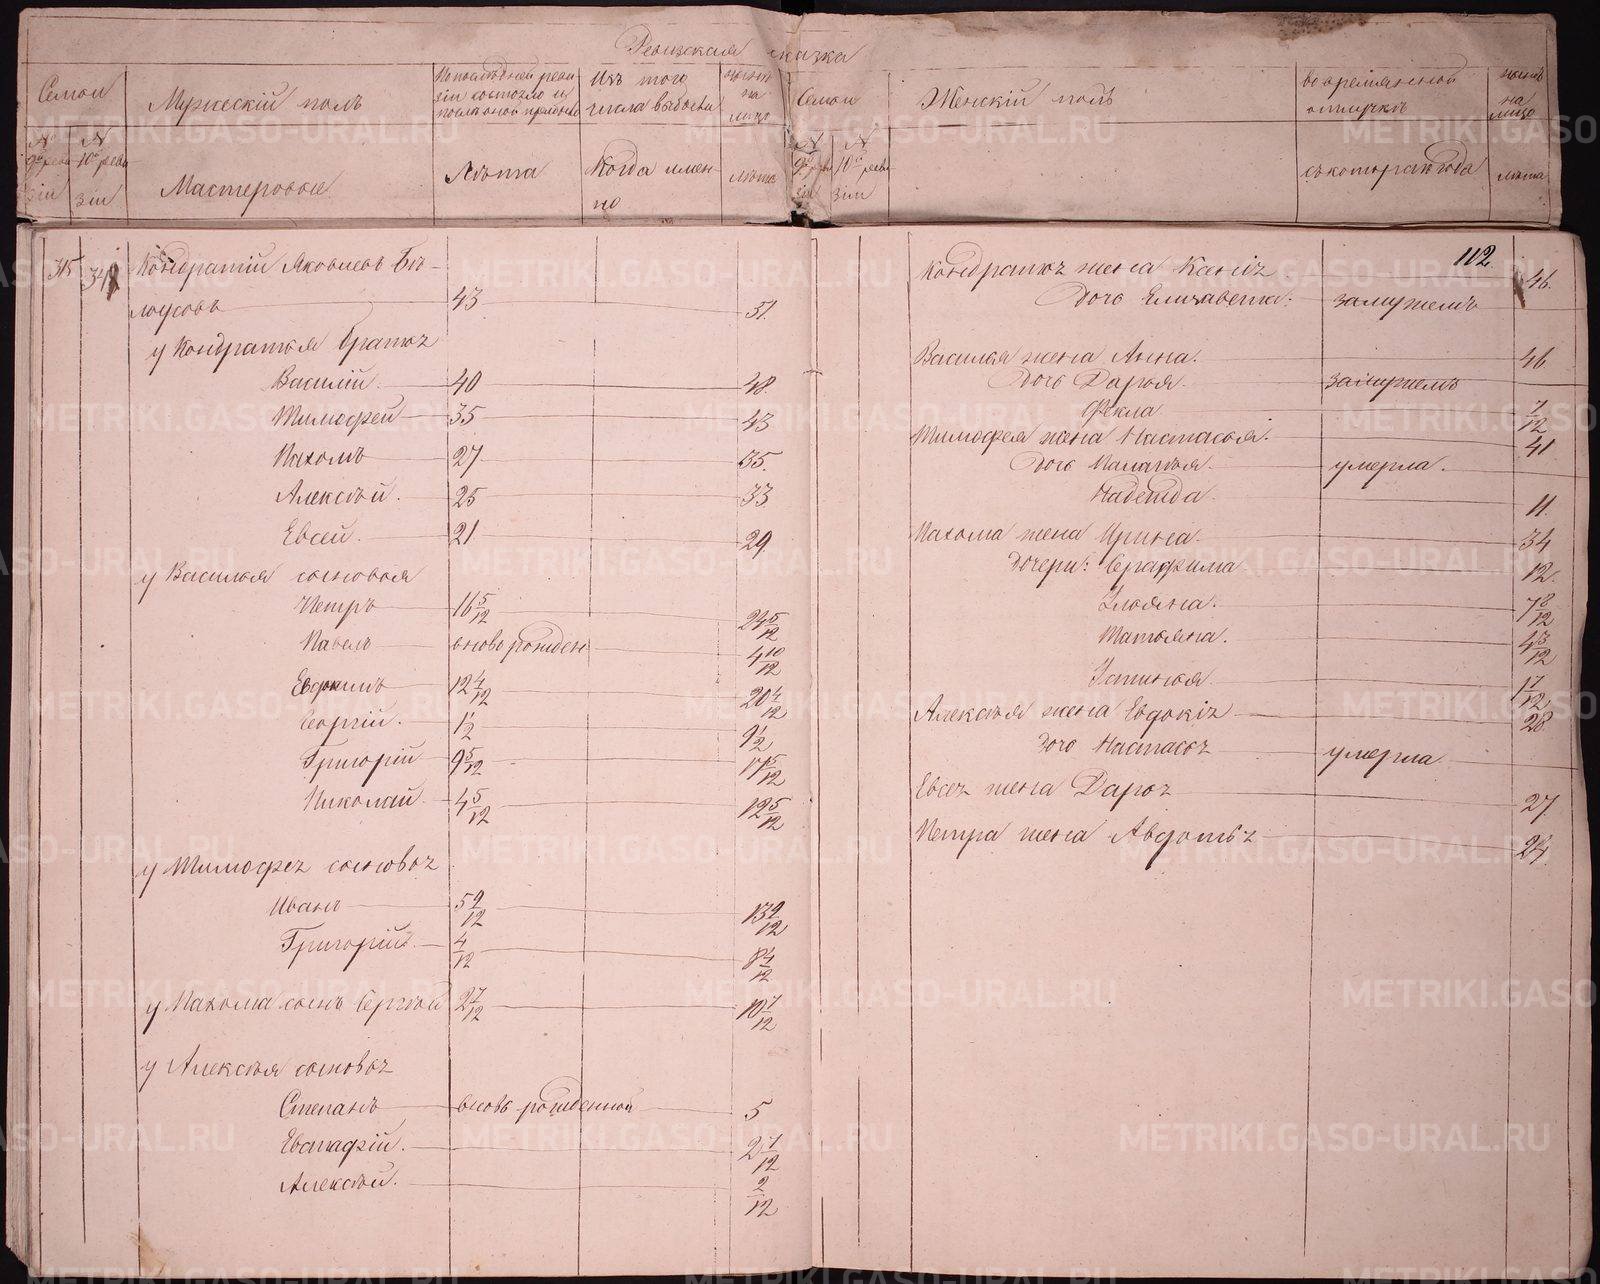 Ревизская сказка
Семьи
Мужескій полъ
По последней реви
зіи состояло и
после оной прибыло
Изъ того
числа выбыло
ныне
на
лицо
Семьи
Женскій полъ
во временной
отлучкѣ
ныне
на
лицо
№
9й реви
зіи
№
10й реви
зіи
Мастеровые
Лѣта
Когда имен-
но
лѣта
№
9й реви
зіи
№
10й реви
зіи
съ котораго года
лѣта
315
Кондратій Яковлевъ Бѣ-
лоусовъ 43 51.
у Кондратья братья
Василій. 40 48.
Тимофей 35 43
Пахомъ 27 35.
Алексѣй. 25 33
Евсей. 21 29
у Василья сыновья
Петръ 16 5/12 24 5/12
Павелъ вновь рожден 4 10/12
Евдокимъ 12 4/12 20 4/12
Георгій. 1 1/2 9 1/2
Григорій 9 5/12 17 5/12
Николай 4 5/12 12 5/12
у Тимофея сыновья
Иванъ 5 9/12 13 9/12
Григорій. 4/12 8 4/12
у Пахома сынъ Сергѣй 2 7/12 10 7/12
у Алексѣя сыновья
Степанъ вновь рожденной 5
Евстафій. 2 7/12
Алексѣй. 2/12
112.
Кондратья жена Ксенія 46.
Дочь Елизавета: замужемъ
Василья жена Анна. 46.
Дочь Дарья. замужемъ
Фекла 7/12
Тимофея жена Настасья. 41
Дочь Маланья. умерла.
Надежда. 11.
Пахома жена Ирина. 34
Дочери: Серафима 12.
Ульяна. 7 8/12
Татьяна. 4 3/12
Устинья 1 7/12
Алексѣя жена Евдокія 28.
Дочь Настасья умерла
Евсея жена Дарья 27
Петра жена Авдотья 24.
METRIKI.GASO-URAL.RU